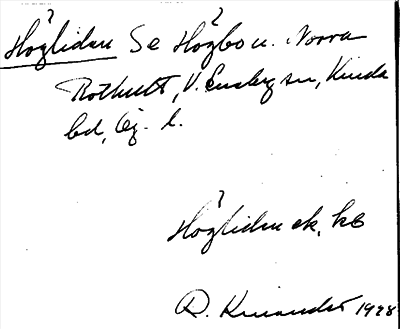 Högliden Se Högbo u. Norra
Rothult, V. Eneby sn, Kinda
hd, Ög. l.
Högliden ek, kb
R. 1928